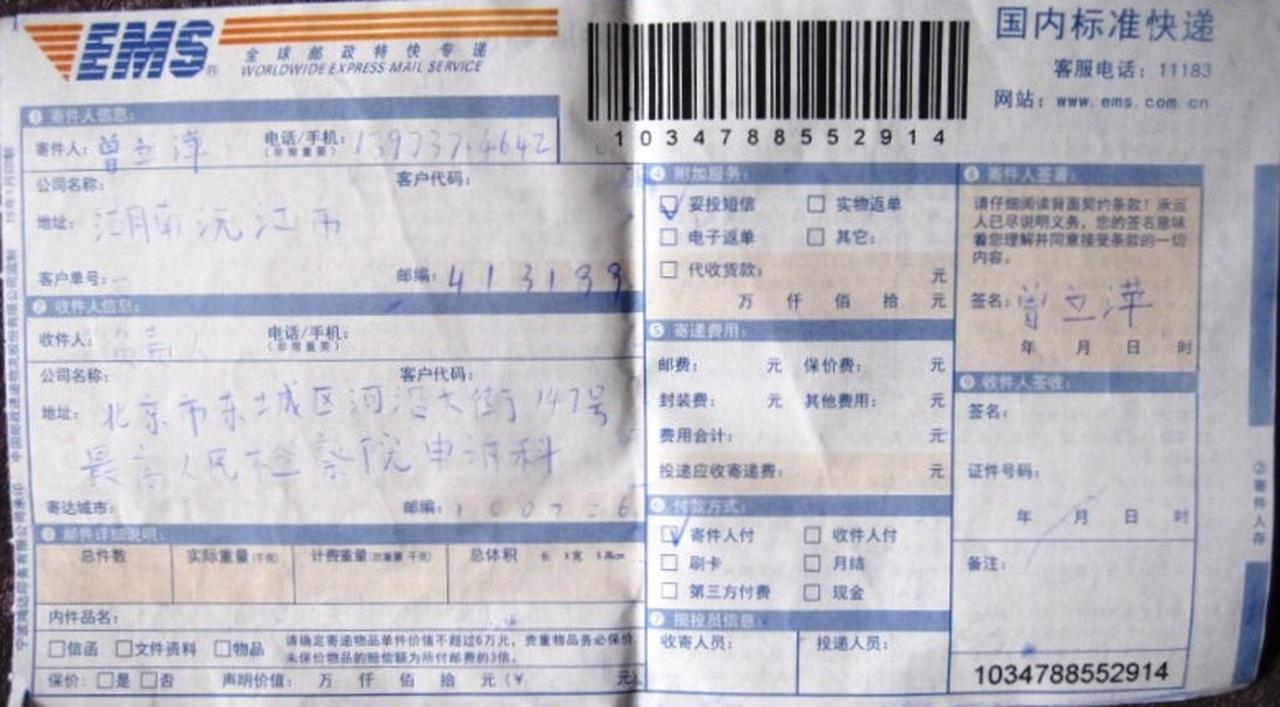 EMS®
全球邮政特快专递
WORLDWIDE EXPRESS MAIL SERVICE
1034788552914
国内标准快递
客服电话：11183
网站：www.ems.com.cn
1 寄件人信息：
寄件人：曾立萍 电话/手机：（非常重要）13973714642
公司名称： 客户代码：
地址：湖南沅江市
客户单号： 邮编：413139
2 收件人信息：
收件人： 电话/手机：（非常重要）
公司名称： 客户代码：
地址：北京市东城区河沿大街147号
最高人民检察院申诉科
寄达城市： 邮编：100726
3 邮件详细说明：
总件数 实际重量（千克） 计费重量（总重量 千克） 总体积 长 x宽 x高cm
内件品名：
信函 文件资料 物品
请确定寄递物品单件价值不超过6万元，贵重物品务必保价，
未保价物品的赔偿额为所付邮费的3倍。
保价： 是 否 声明价值： 万 仟 佰 拾 元（¥ 元）
4 附加服务：
妥投短信 实物返单
电子返单 其它：
代收货款： 元
万 仟 佰 拾 元
5 寄递费用：
邮费： 元 保价费： 元
封装费： 元 其他费用： 元
费用合计： 元
投递应收寄递费： 元
6 付款方式：
寄件人付 收件人付
刷卡 月结
第三方付费 现金
7 揽投员信息：
收寄人员： 投递人员：
8 寄件人签署：
请仔细阅读背面契约条款！承运
人已尽说明义务，您的签名意味
着您理解并同意接受条款的一切
内容。
签名：曾立萍
年 月 日 时
9 收件人签收：
签名：
证件号码：
年 月 日 时
备注：
1034788552914
③寄件人存